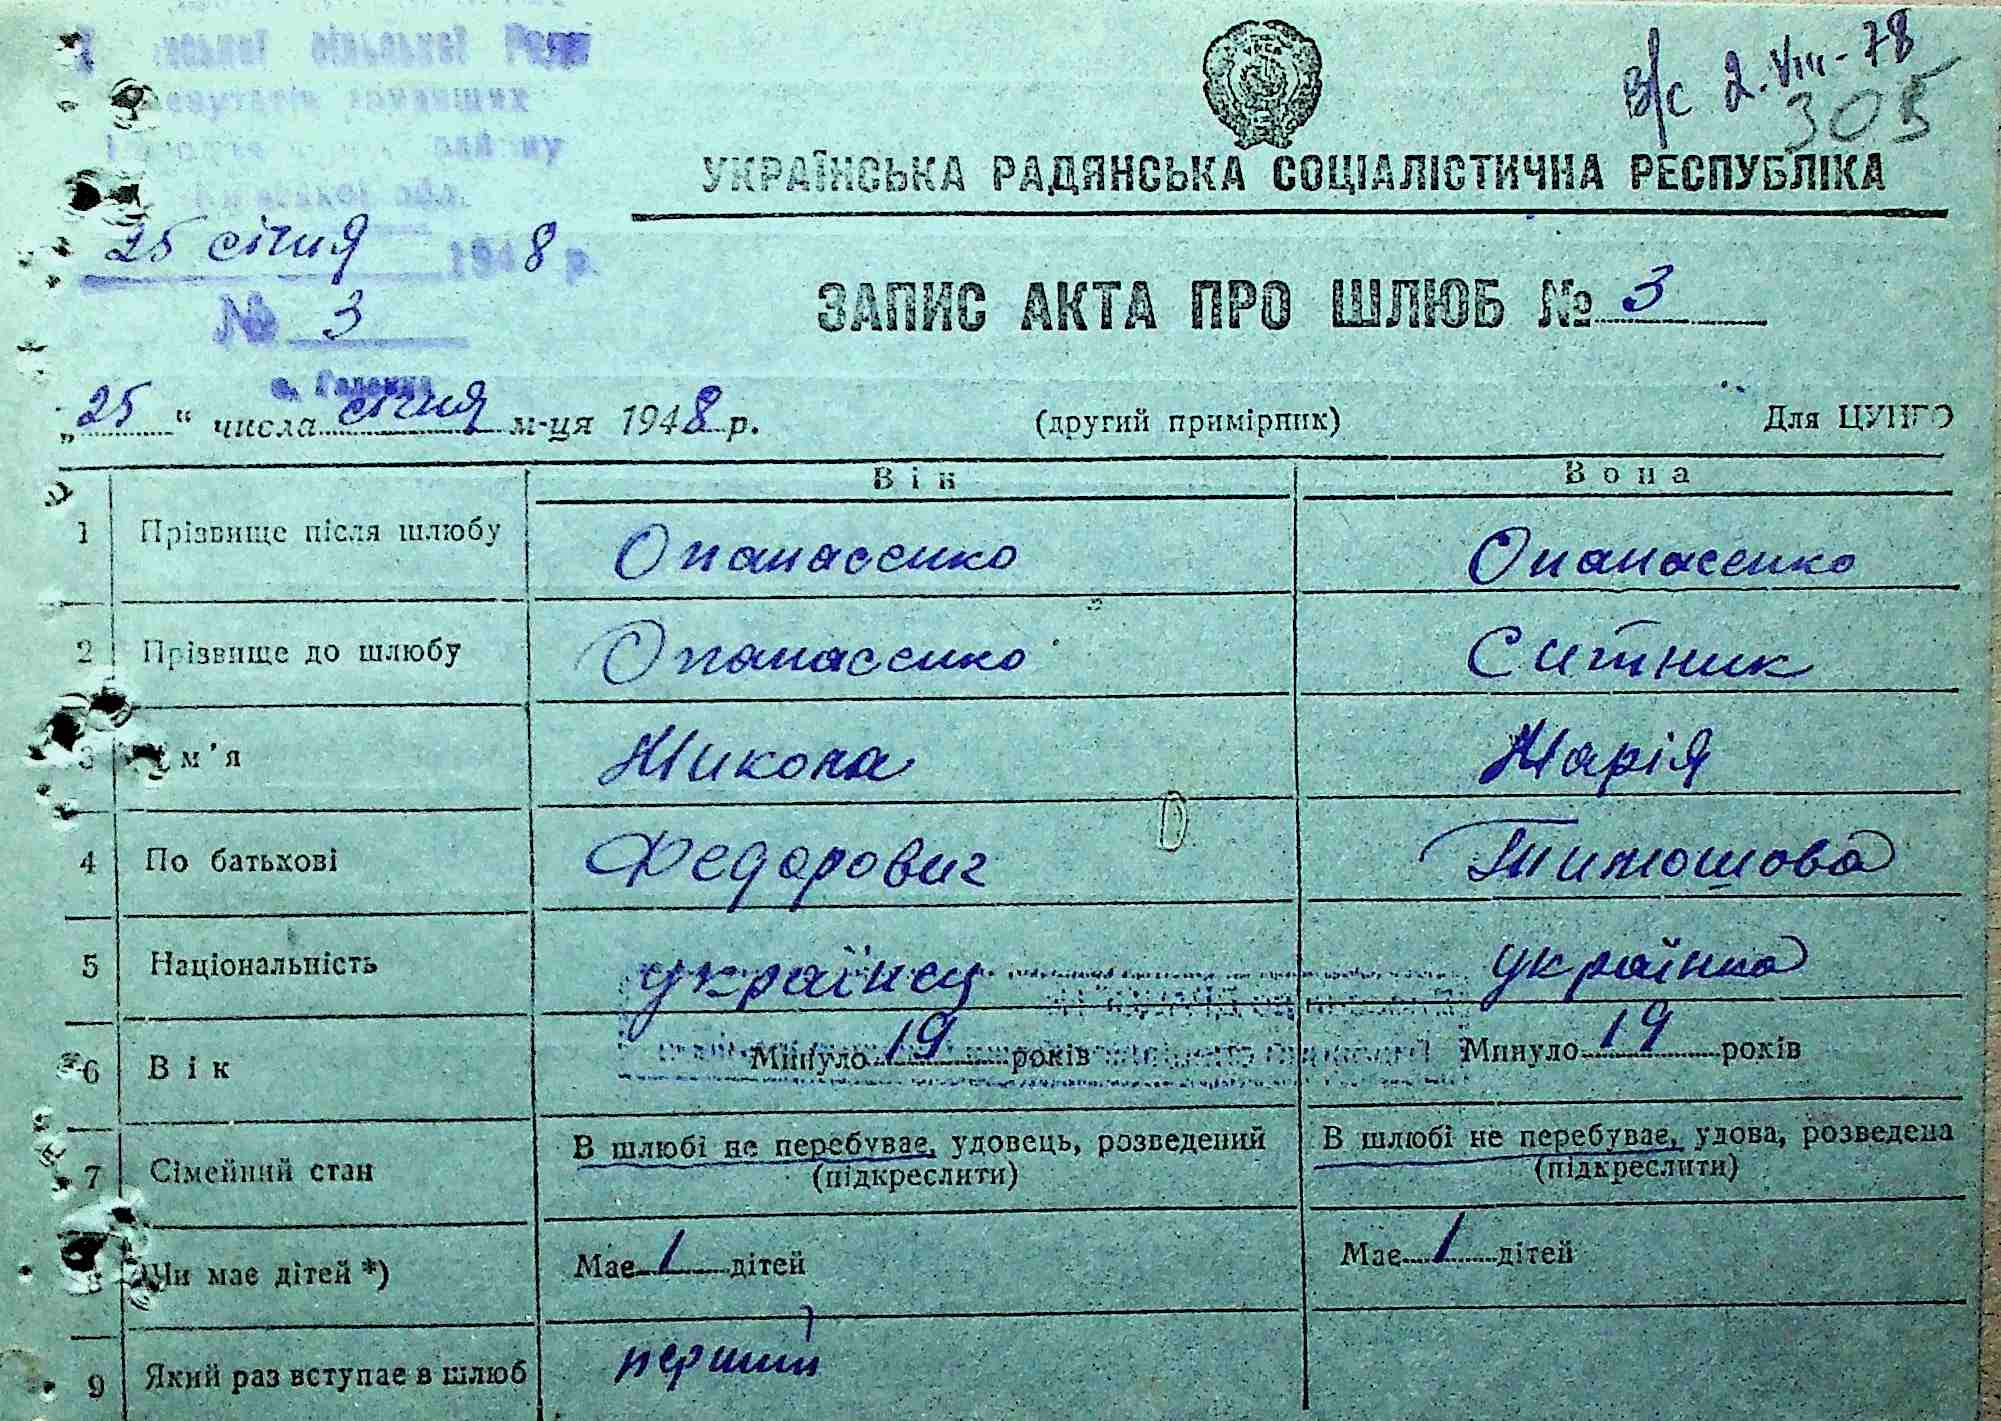 сільської Ради
депутатів трудящих
району
обл.
25 січня 1948 р.
№ 3
В/с 2.VIII-78
305
УКРАЇНСЬКА РАДЯНСЬКА СОЦІАЛІСТИЧНА РЕСПУБЛІКА
ЗАПИС АКТА ПРО ШЛЮБ № 3
„25“ числа січня м-ця 1948 р. (другий примірник) Для ЦУНГО
Він Вона
1 Прізвище після шлюбу Опанасенко Опанасенко
2 Прізвище до шлюбу Опанасенко Ситник
3 Ім'я Микола Марія
4 По батькові Федорович Тимошова
5 Національність українец українка
6 Вік Минуло 19 років Минуло 19 років
7 Сімейний стан В шлюбі не перебуває, удовець, розведений (підкреслити) В шлюбі не перебуває, удова, розведена (підкреслити)
8 Чи має дітей *) Має 1 дітей Має 1 дітей
9 Який раз вступає в шлюб перший